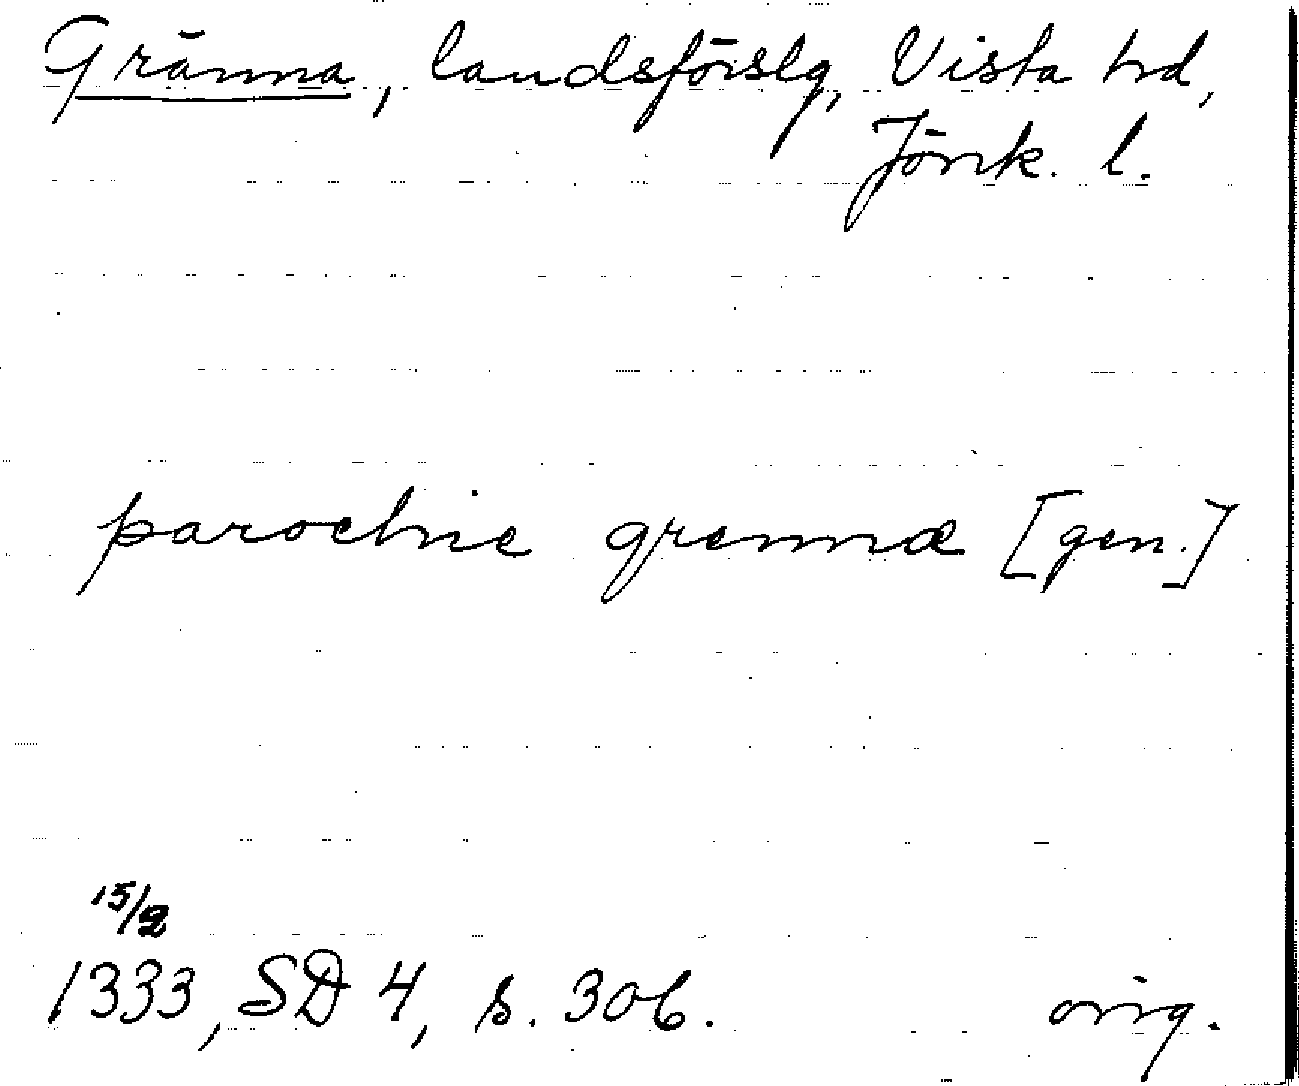 Gränna, landsförslg, Vista hd,
Jönk. l.
parochie grennæ [gen.]
15/2
1333, SD 4, s. 306. orig.